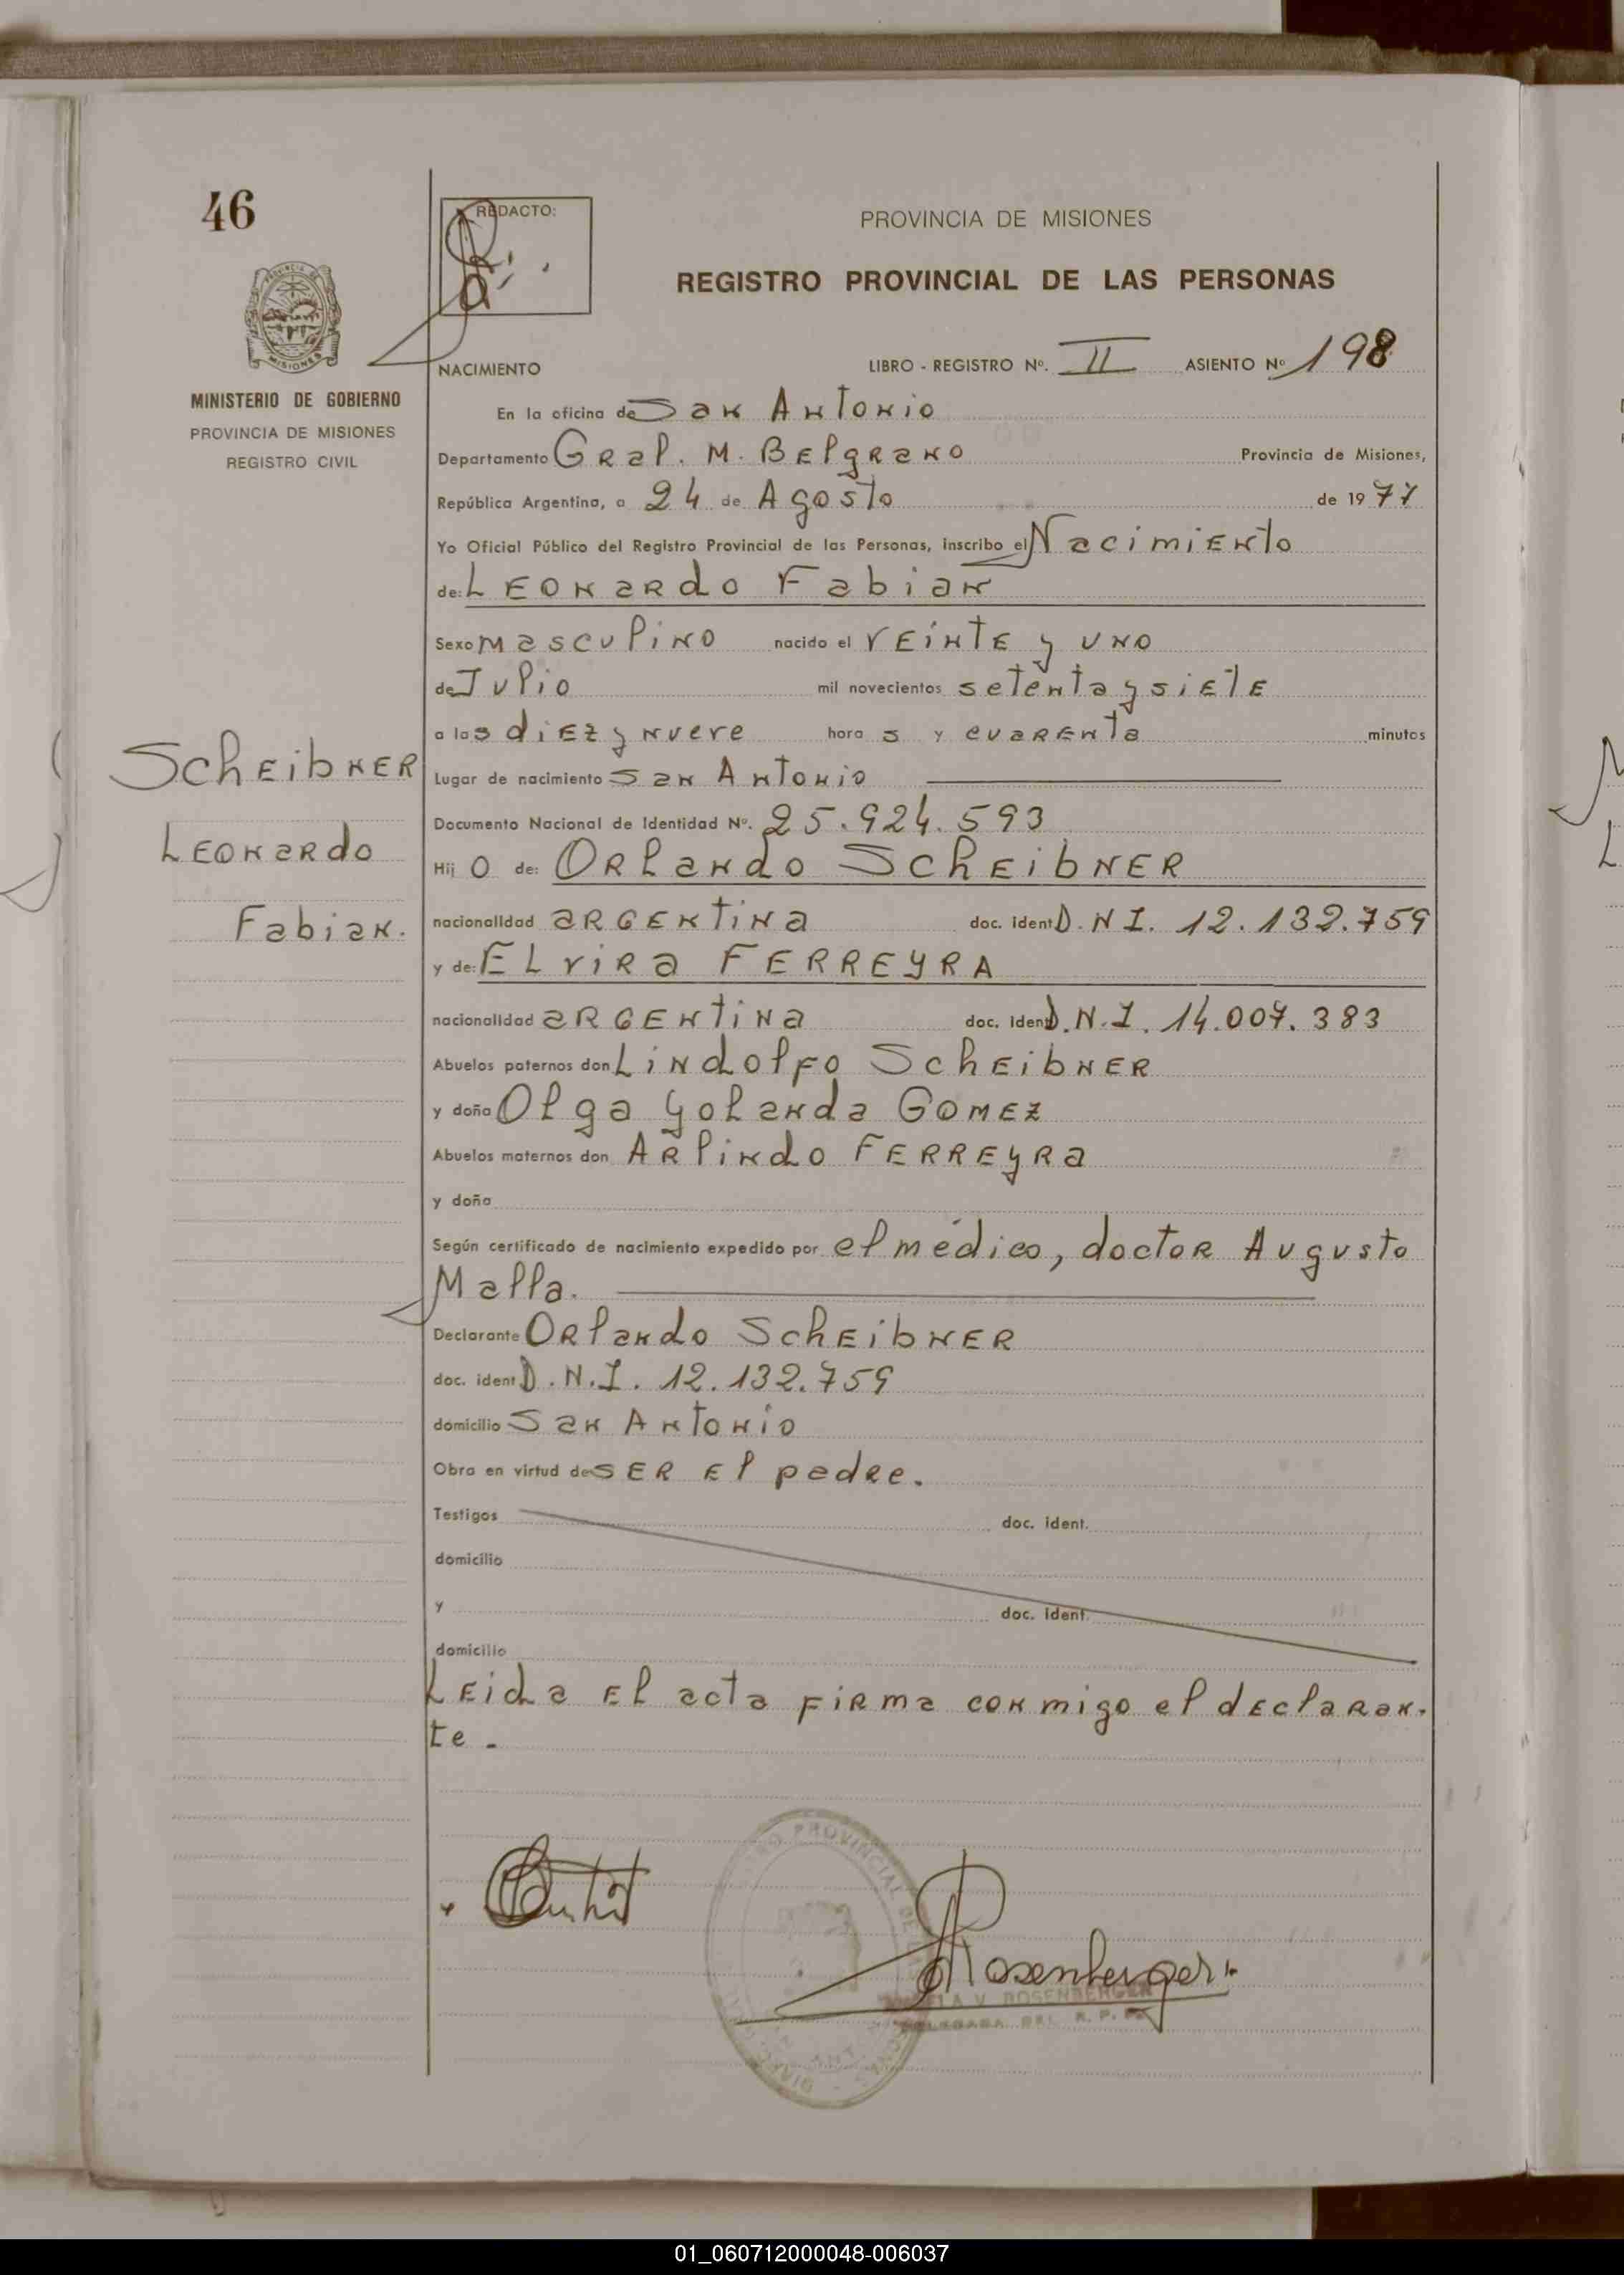 46
REDACTO:
PROVINCIA DE MISIONES
REGISTRO PROVINCIAL DE LAS PERSONAS
MINISTERIO DE GOBIERNO
PROVINCIA DE MISIONES
REGISTRO CIVIL
NACIMIENTO LIBRO - REGISTRO Nº. II ASIENTO Nº 198
En la oficina de San Antonio
Departamento Gral. M. Belgrano Provincia de Misiones,
República Argentina, a 24 de Agosto de 1977
Yo Oficial Público del Registro Provincial de las Personas, inscribo el Nacimiento
de: Leonardo Fabian
Sexo masculino nacido el veinte y uno
de Julio mil novecientos setenta y siete
a las diez y nueve hora s y cuarenta minutos
Scheibner
Leonardo
Fabian.
Lugar de nacimiento San Antonio
Documento Nacional de Identidad Nº. 25.924.593
Hij o de: Orlando Scheibner
nacionalidad argentina doc. ident D.N.I. 12.132.759
y de: Elvira FERREYRA
nacionalidad argentina doc. ident D.N.I. 14.007.383
Abuelos paternos don Lindolfo Scheibner
y doña Olga Yolanda Gomez
Abuelos maternos don Arlindo FERREYRA
y doña
Según certificado de nacimiento expedido por el médico, doctor Augusto
Malla.
Declarante Orlando Scheibner
doc. ident D.N.I. 12.132.759
domicilio San Antonio
Obra en virtud de ser el padre.
Testigos doc. ident.
domicilio
y doc. ident.
domicilio
Leida el acta firma conmigo el declaran-
te.
Rosenberger
V. ROSENBERGER
DELEGADA DEL R. P.
01_060712000048-006037